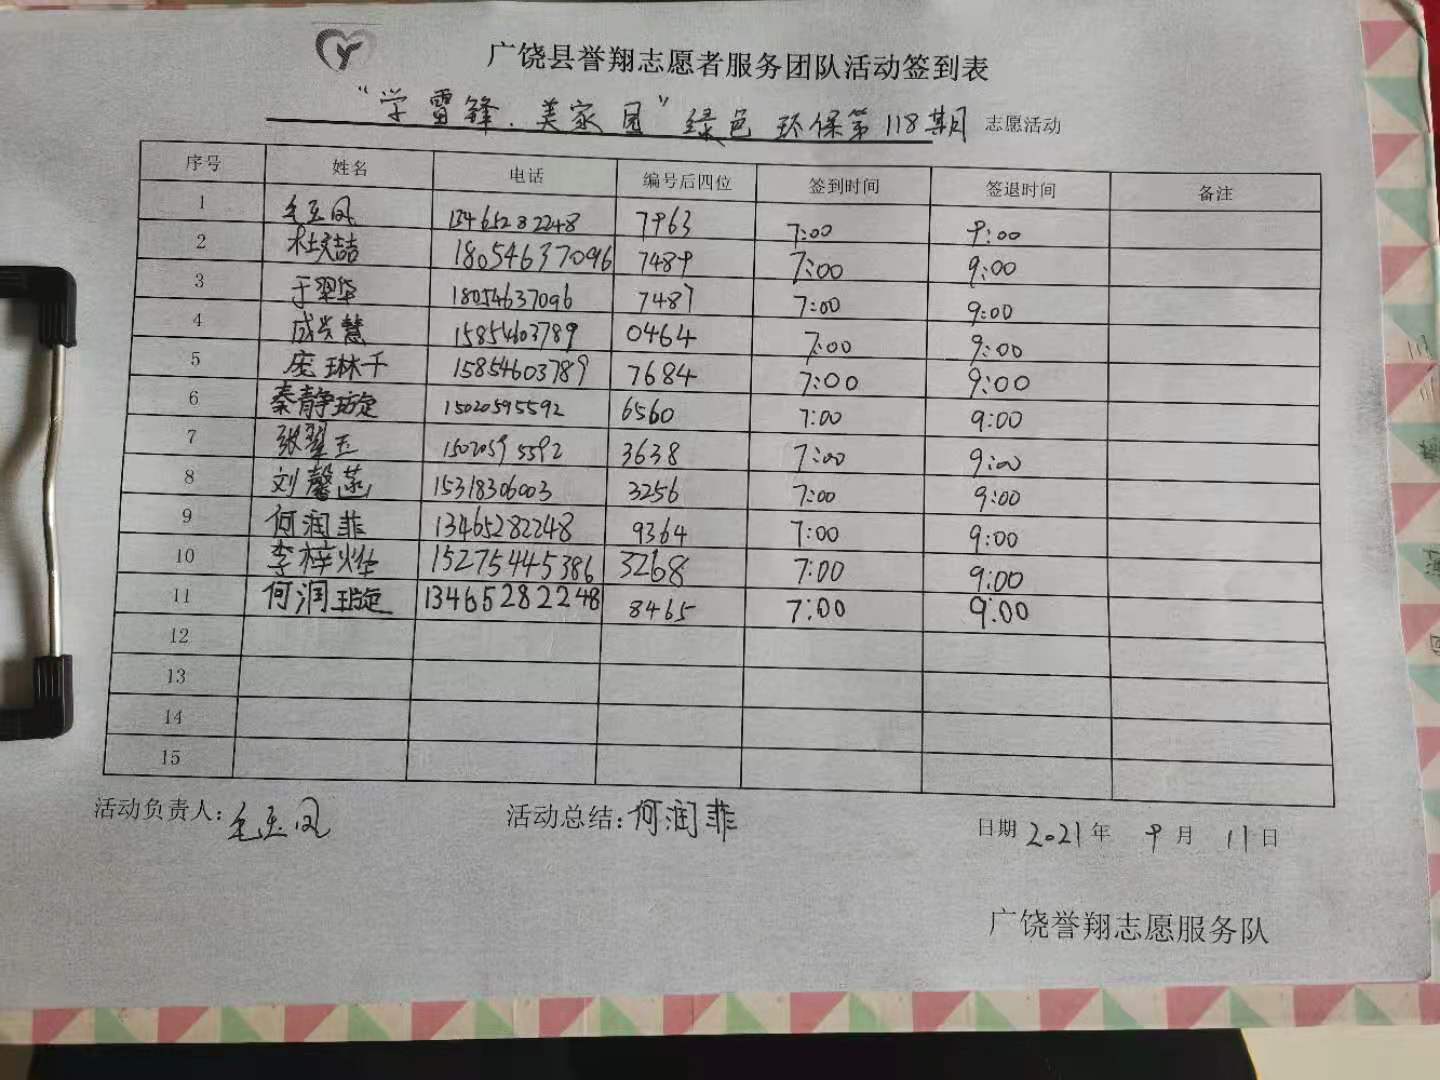 广饶县誉翔志愿者服务团队活动签到表
“学雷锋.美家园”绿色环保第118期 志愿活动
序号 姓名 电话 编号后四位 签到时间 签退时间 备注
1 毛玉凤 13465282248 7963 7:00 9:00
2 杜文喆 18054637096 7489 7:00 9:00
3 于翠华 18054637096 7487 7:00 9:00
4 成兴慧 15854603789 0464 7:00 9:00
5 庞琳千 15854603789 7684 7:00 9:00
6 秦静璇 15020595592 6560 7:00 9:00
7 张翠玉 15020595592 3638 7:00 9:00
8 刘馨 15318306003 3256 7:00 9:00
9 何润菲 13465282248 9364 7:00 9:00
10 李梓烨 15275445386 3268 7:00 9:00
11 何润璇 13465282248 8465 7:00 9:00
12
13
14
15
活动负责人:毛玉凤 活动总结:何润菲 日期 2021年 9月 11日
广饶誉翔志愿服务队